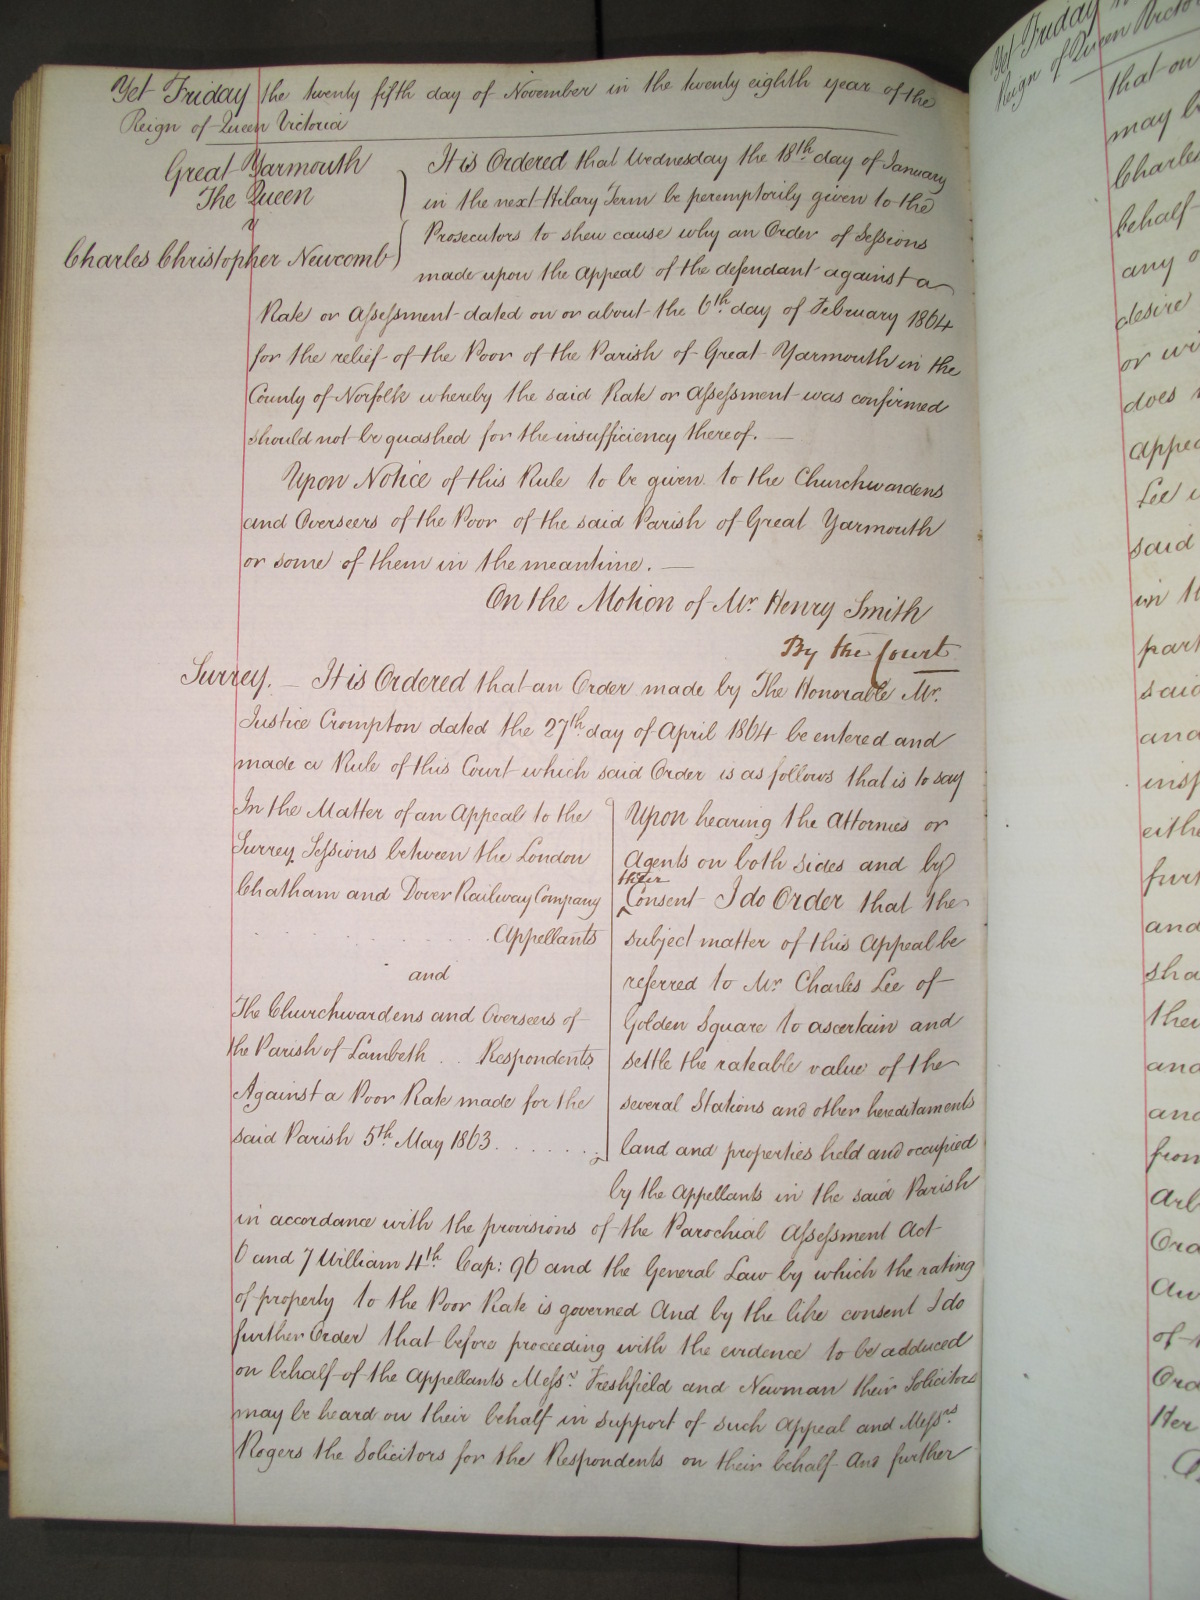 Yet Friday the twenty fifth day of November in the twenty eighth year of the
Reign of Queen Victoria
Great Yarmouth
The Queen
v
Charles Christopher Newcomb
It is Ordered that Wednesday the 18th day of January
in the next Hilary Term be peremptorily given to the
Prosecutors to shew cause why an Order of Sessions
made upon the Appeal of the defendant against a
Rate or Assessment dated on or about the 6th day of February 1864
for the relief of the Poor of the Parish of Great Yarmouth in the
County of Norfolk whereby the said Rate or Assessment was confirmed
should not be quashed for the insufficiency thereof.
Upon Notice of this Rule to be given to the Churchwardens
and Overseers of the Poor of the said Parish of Great Yarmouth
or some of them in the meantime.
On the Motion of Mr. Henry Smith
By the Court
Surrey. — It is Ordered that an Order made by The Honorable Mr.
Justice Crompton dated the 27th day of April 1864 be entered and
made a Rule of this Court which said Order is as follows that is to say
In the Matter of an Appeal to the
Surrey Sessions between the London
Chatham and Dover Railway Company
Appellants
and
The Churchwardens and Overseers of
the Parish of Lambeth . . Respondents
Against a Poor Rate made for the
said Parish 5th May 1863 . . . . . . .
Upon hearing the Attornies or
Agents on both sides and by
their
Consent I do Order that the
subject matter of this Appeal be
referred to Mr Charles Lee of
Golden Square to ascertain and
settle the rateable value of the
several Stations and other hereditaments
land and properties held and occupied
by the Appellants in the said Parish
in accordance with the provisions of the Parochial Assessment Act
6 and 7 William 4th Cap: 96 and the General Law by which the rating
of property to the Poor Rate is governed And by the like consent I do
further Order that before proceeding with the evidence to be adduced
on behalf of the Appellants Messrs Freshfield and Newman their Solicitors
may be heard on their behalf in support of such Appeal and Messrs
Rogers the Solicitors for the Respondents on their behalf And further
Yet Friday
Reign of Queen
that on
may b
Charles
behalf
any o
desire
or wi
does
Appea
Lee
said
in th
part
said
and
insp
eithe
furt
and
sha
thei
and
and
from
Arb
Ord
Aw
of
Ord
Her